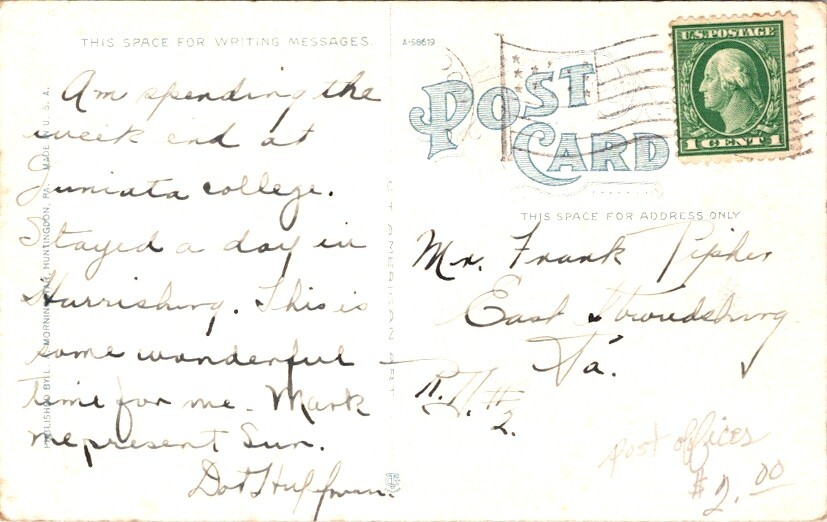 THIS SPACE FOR WRITING MESSAGES.
Am spending the
week end at
Juniata college.
Stayed a day in
Harrisburg. This is
some wonderful
time for me. Mark
me present Sun.
Dot Huffman.
MADE IN U. S. A.
HUNTINGDON, PA.
A-58619
POST
CARD
U.S. POSTAGE
1 CENT 1
THIS SPACE FOR ADDRESS ONLY
Mr. Frank Pipher
East Stroudsburg
Pa.
R. D. #
2.
post offices
$2.00